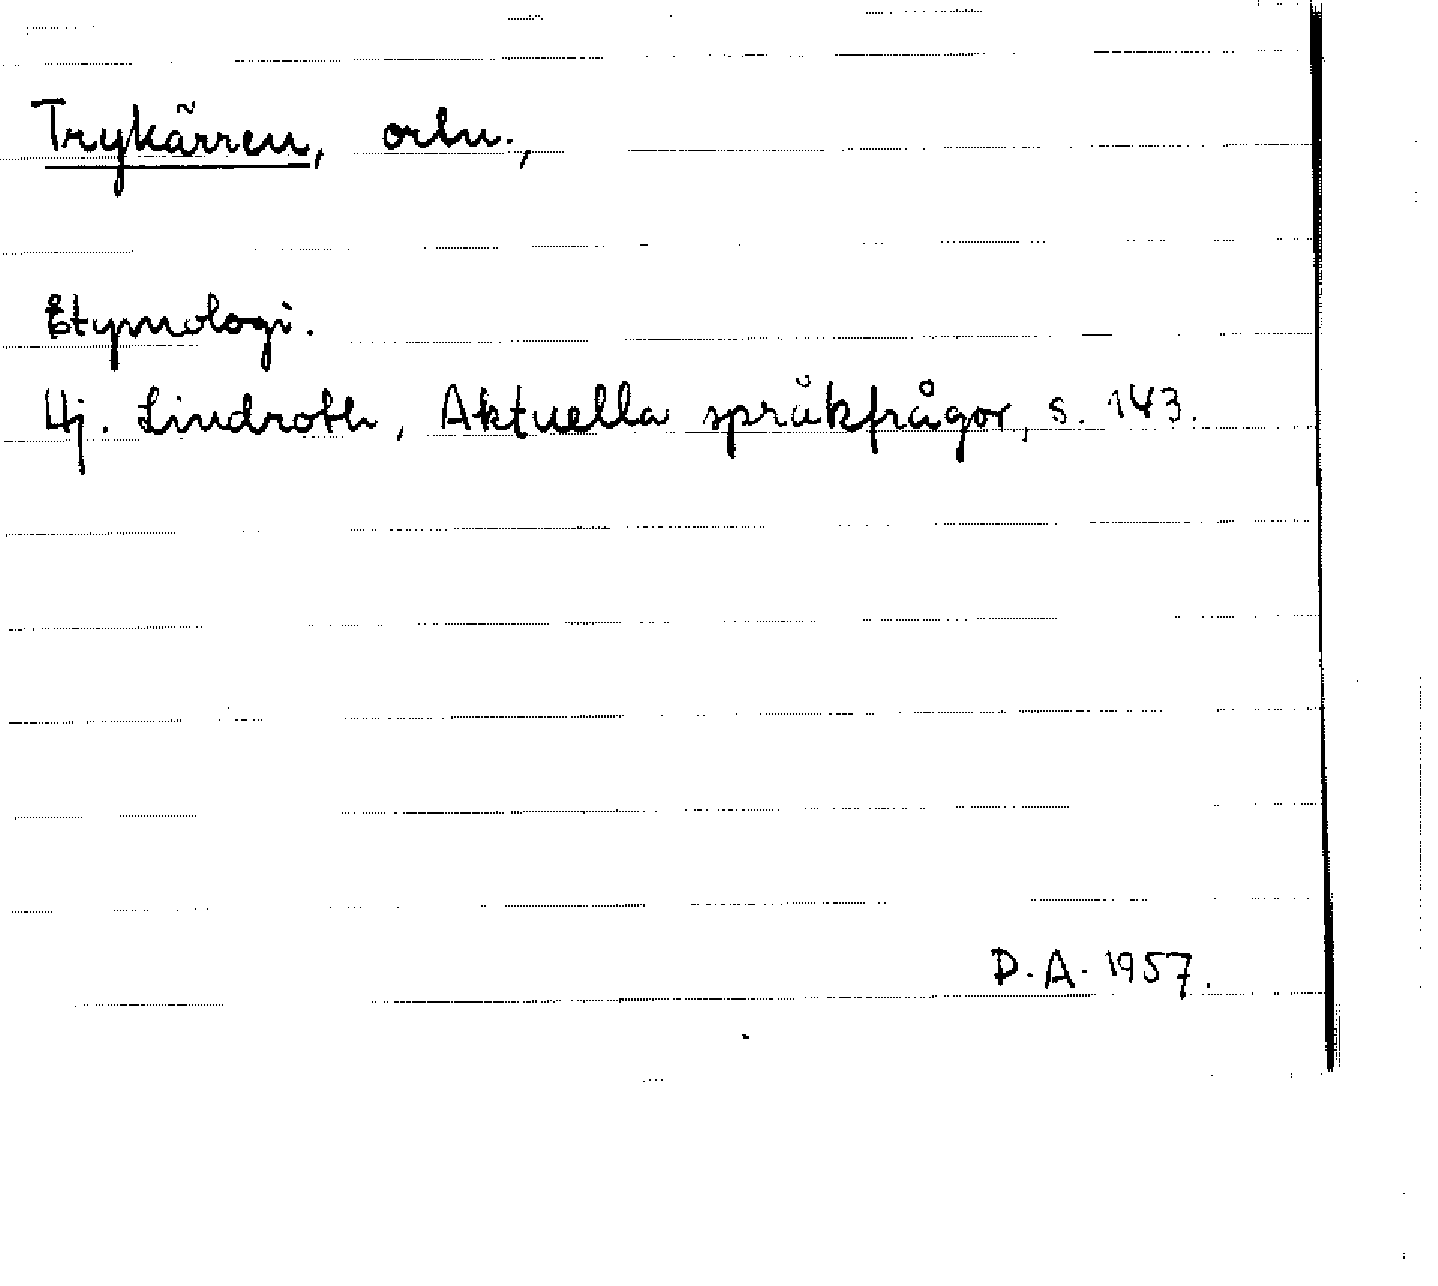 Trykärren, ortn.,
Etymologi.
Hj. Lindroth, Aktuella språkfrågor, s. 143.
D.A. 1957.